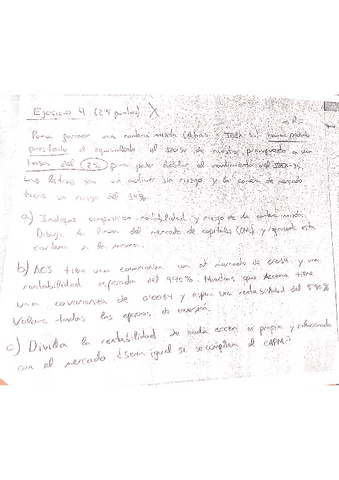 Ejercicio 4 (2'5 puntos) X
Para formar una cartera mixta (letras + IBEX 35) hemos pedido
prestado el equivalente al de nuestro presupuesto a una
tasa del 2% para poder doblar el rendimiento del IBEX-35.
Las letras son un activo sin riesgo y la cartera de mercado
tiene un riesgo del 14%.
a) Indique composición, rentabilidad y riesgo de la cartera mixta.
Dibuje la línea del mercado de capitales (CML) y represente esta
cartera en la misma.
b) ACS tiene una covarianza con el mercado de y una
rentabilidad esperada del Mientras que Acciona tiene
una covarianza de y espera una rentabilidad del
Valore todas las opciones de inversión.
c) Divida la rentabilidad de cada acción en propia y relacionada
con el mercado. ¿sería igual si se cumpliera el CAPM?